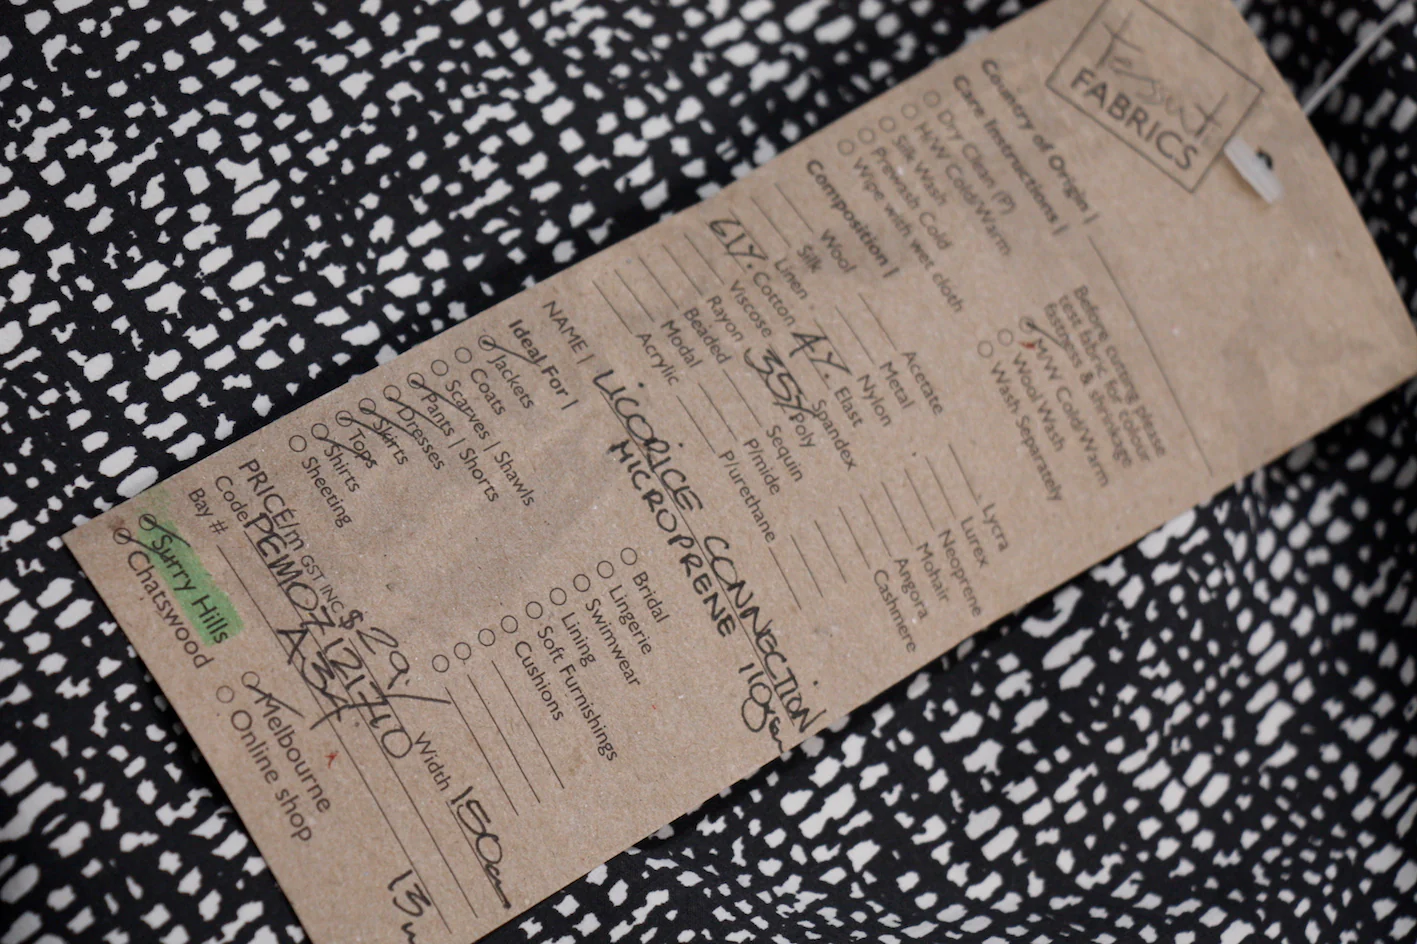 Tessuti
FABRICS
Country of Origin |
Care Instructions |
Dry Clean (P)
H/W Cold/Warm
Silk Wash
Prewash Cold
Wipe with wet cloth
Before cutting please
test fabric for colour
fastness & shrinkage
M/W Cold/Warm
Wool Wash
Wash Separately
Composition |
Wool
Silk
Linen
61%. Cotton
Viscose
Rayon
Beaded
Modal
Acrylic
Acetate
Metal
Nylon
4%. Elast
Spandex
35% Poly
Sequin
P/mide
P/urethane
Lycra
Lurex
Neoprene
Mohair
Angora
Cashmere
NAME | LICORICE CONNECTION
MICROPRENE 110
Ideal For |
Jackets
Coats
Scarves | Shawls
Pants | Shorts
Dresses
Skirts
Tops
Shirts
Sheeting
Bridal
Lingerie
Swimwear
Lining
Soft Furnishings
Cushions
PRICE/m GST INC $29. Width 150
Code
Bay #
13
Surry Hills
Chatswood
Melbourne
Online shop